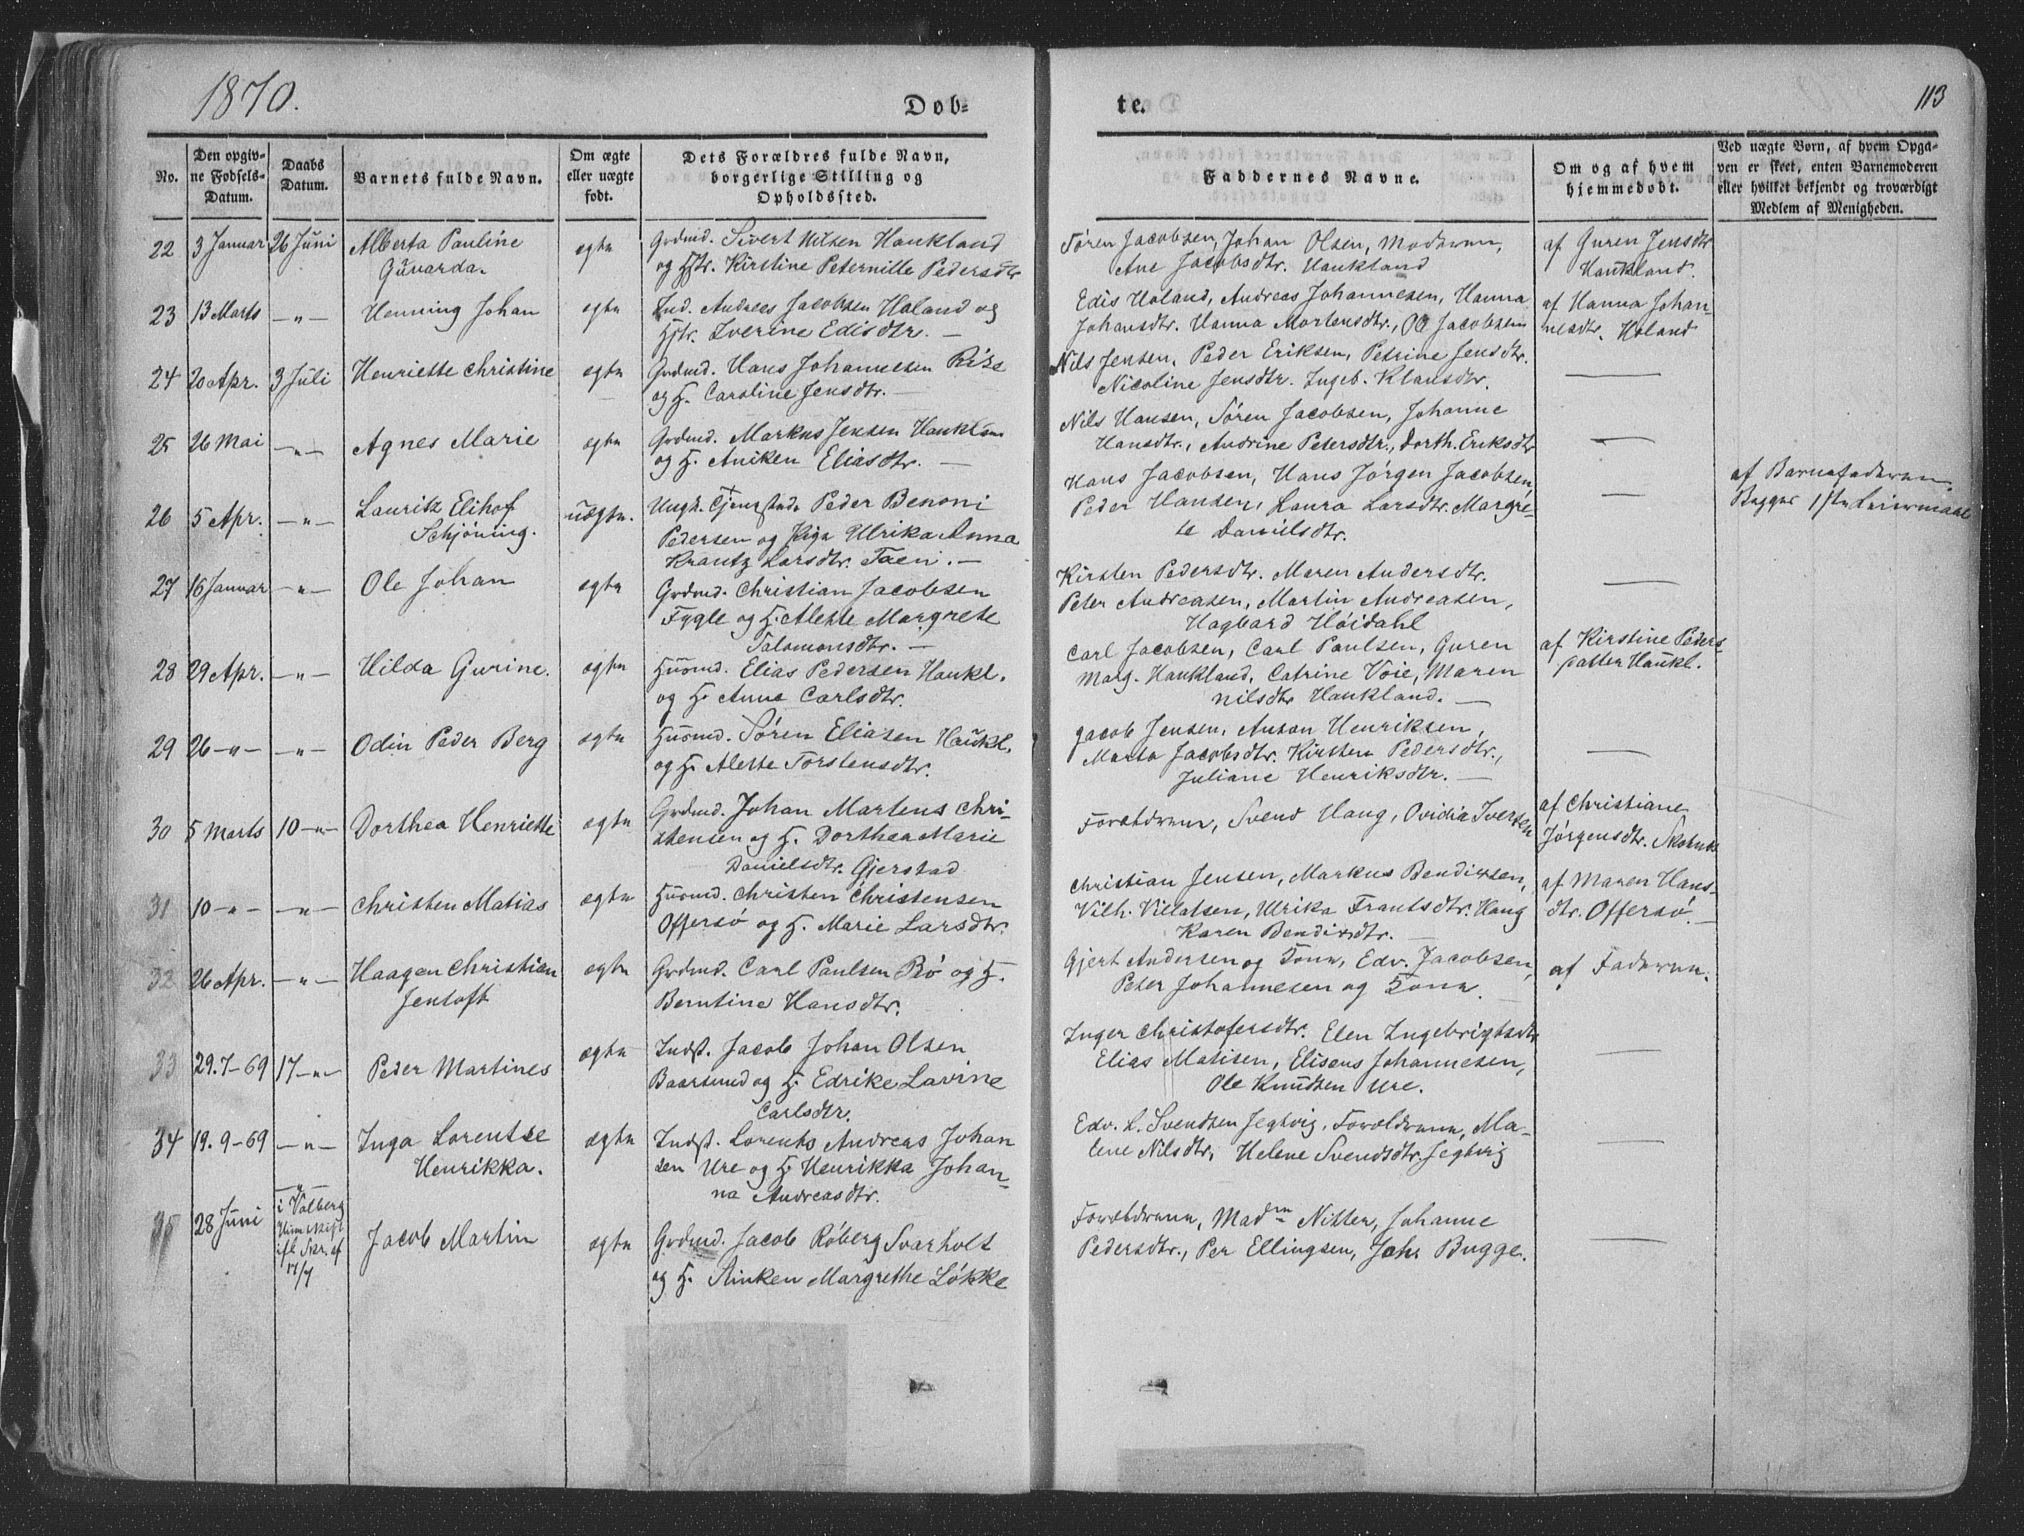 1870.
Dob=
te.
113
No.
Den opgiv=
ne Fødsels=
Datum.
Daabs
Datum.
Barnets fulde Navn.
Om ægte
eller uægte
født.
Dets Forældres fulde Navn,
borgerlige Stilling og
Opholdssted.
Faddernes Navne.
Om og af hvem
hjemmedøbt.
Ved uægte Børn, af hvem Opga=
ven er skeet, enten Barnemoderen
eller hvilket bekjendt og troværdigt
Medlem af Menigheden.
22 3 Januar 26 Juni Alberta Pauline ægte Grdmd. Sivert Nilsen Haukland
Guvarda. og Hstr. Kirstine Peternille Pedersdtr
Søren Jacobsen, Johan Olsen, Moderen,
Ane Jacobsdtr. Haukland
af Guren Jensdtr
Haukland.
23 13 Marts -"- Henning Johan ægte Ind. Andreas Jacobsen Holand og
Hstr. Iverine Edisdtr. —
Edis Holand, Andreas Johannesen, Hanna
Johansdtr. Hanna Mortensdtr., Ole Jacobsen
af Hanna Johan-
nesdtr. Holand
24 20 Apr. 3 Juli Henriette Christine ægte Grdmd. Hans Johannesen Rise
og H. Caroline Jensdtr. —
Nils Jensen, Peder Eriksen, Petrine Jensdtr.
Nicoline Jensdtr. Ingeb. Klausdtr. —
25 26 Mai -"- Agnes Marie ægte Grdmd. Markus Jensen Haukland
og H. Aniken Eliasdtr. —
Nils Hansen, Søren Jacobsen, Johanne
Hansdtr., Andrine Petersdtr., Dorth. Eriksdtr —
26 5 Apr. -"- Lauritz Elihof uægte. Ungk. Peder Benoni
Schjøning. Pedersen og Pige Ulrika Anna
Krantz Larsdtr. Taen. —
Hans Jacobsen, Hans Jørgen Jacobsen,
Peder Hansen, Laura Larsdtr. Margre-
te Danielsdtr. —
af Barnefaderen.
Begges 1ste Leiermaal
27 16 Januar -"- Ole Johan ægte Grdmd. Christian Jacobsen
Fygle og H. Alette Margrete
Salomonsdtr. —
Kirsten Pedersdtr. Maren Andersdtr.
Peter Andreasen, Martin Andreasen,
Hagbard Høidahl —
28 29 Apr. -"- Hilda Gurine. ægte Husmd. Elias Pedersen Haukl.
og H. Anne Carlsdtr.
Carl Jacobsen, Carl Paulsen, Guren
Marg. Haukland, Catrine Voie, Maren
Nilsdtr Haukland. —
af Kirstine Peders-
datter Haukl.
29 26 -"- -"- Odin Peder Berg ægte Husmd. Søren Eliasen Haukl.
og H. Alette Torstensdtr.
Jacob Jensen, Anton Henriksen,
Marta Jacobsdtr. Kirsten Pedersdtr.,
Juliane Henriksdtr. — —
30 5 Marts 10 -"- Dorthea Henriette ægte Grdmd. Johan Martens Chri-
stensen og H. Dorthea Marie
Danielsdtr. Gjerstad
Forældrene, Svend Haug, Ovidia Iversen
af Christiane
Jørgensdtr.
31 10 -"- -"- Christen Matias ægte Husmd. Christen Christensen
Offersø og H. Marie Larsdtr.
Christian Jensen, Markus Bendixsen,
Vilh. Villatsen, Ulrika Frantsdtr. Haug
Karen Bendixdtr. —
af Maren Hans-
dtr. Offersø. —
32 26 Apr. -"- Haagen Christian ægte Grdmd. Carl Paulsen Bø og H.
Jentoft Berntine Hansdtr.
Gjert Andersen og Kone, Edv. Jacobsen,
Peter Johannesen og Kone.
af Faderen.
33 29.7-69 17 -"- Peder Martines ægte Indst. Jacob Johan Olsen
Baarsund og H. Edrike Lavine
Carlsdtr.
Inger Christofersdtr. Elen Ingebrigtsdtr
Elias Matisen, Eliseus Johannesen,
Ole Knudsen Ure. —
34 19.9-69 -"- Inga Lorentse ægte Indst. Lorents Andreas Johan
Henrikka. sen Ure og H. Henrikka Johan-
na Andreasdtr.
Edv. L. Svendsen Jegtvig. Forældrene, Ma-
lene Nilsdtr, Helene Svendsdtr. Jegtvig —
35 28 Juni -"-
i Valberg
17/7
Jacob Martin ægte Grdmd. Jacob Røberg Svarholt
og H. Anken Margrethe Løkke
Forældrene, Madm Nitter, Johanne
Pedersdtr., Per Ellingsen, Johs Bugge. —